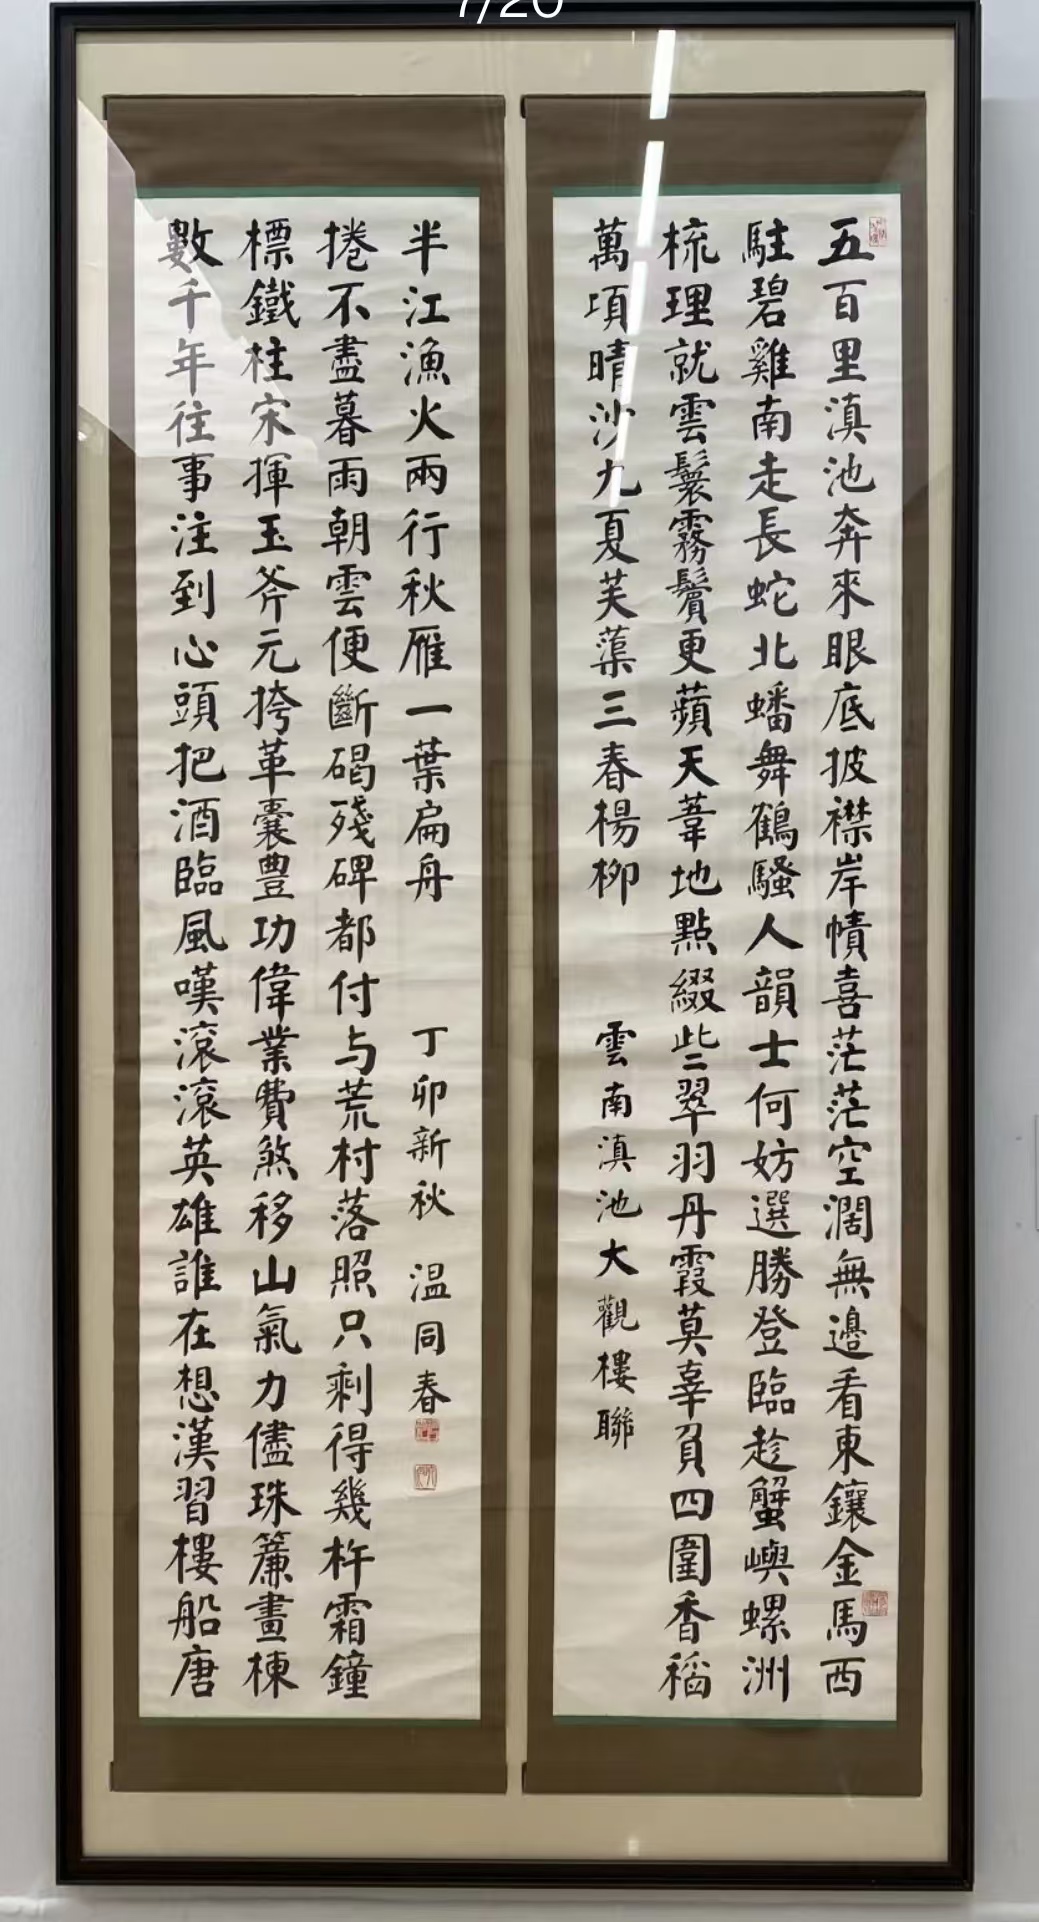 五百里滇池奔來眼底披襟岸幘喜茫茫空濶無邊看東鑲金馬西
駐碧雞南走長蛇北蟠舞鶴騷人韻士何妨選勝登臨趁蟹嶼螺洲
梳理就雲鬟霧鬢更蘋天葦地點綴些翠羽丹霞莫辜負四圍香稻
萬項晴沙九夏芙蕖三春楊柳
雲南滇池大觀樓聯
數千年往事注到心頭把酒臨風嘆滾滾英雄誰在想漢習樓船唐
標鐵柱宋揮玉斧元挎革囊豐功偉業費煞移山氣力儘珠簾畫棟
捲不盡暮雨朝雲便斷碣殘碑都付与荒村落照只剩得幾杵霜鐘
半江漁火兩行秋雁一葉扁舟
丁卯新秋 温同春